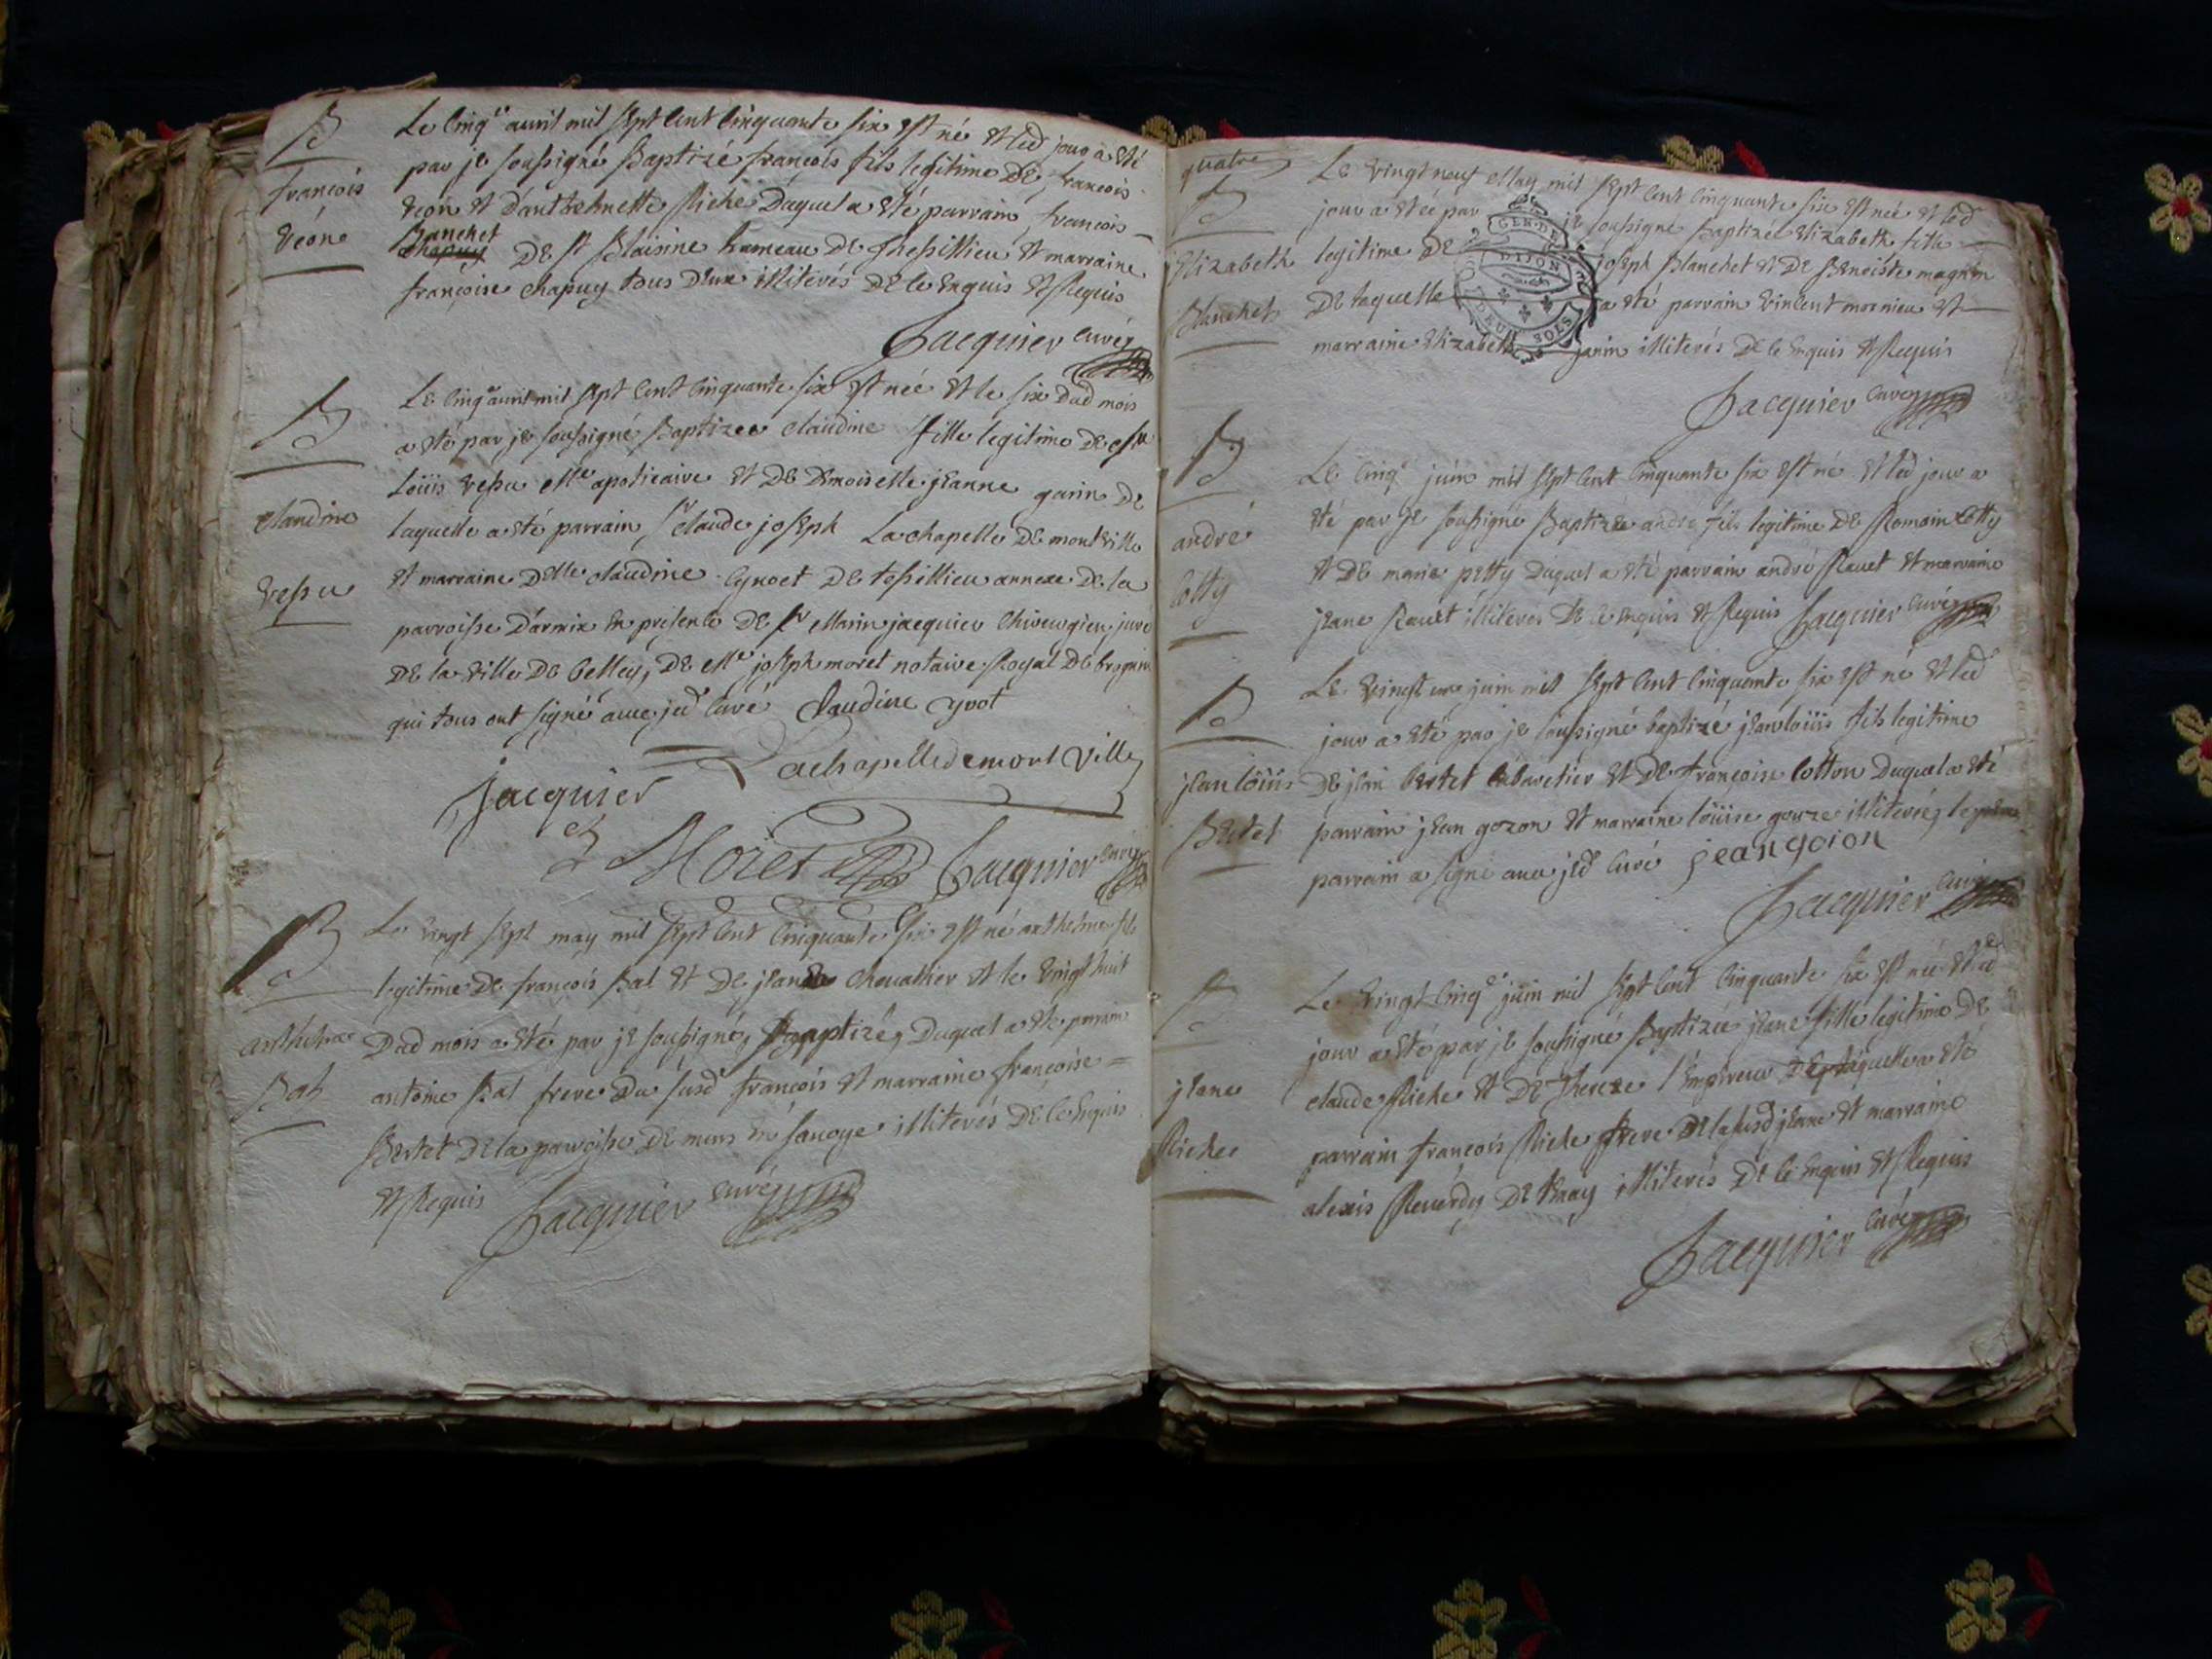 B
françois
Véone
Le cinq.e avril mil sept cent cinquante six est né et led jour a été
par je soussigné Baptizé françois fils legitime De françois
Veon et Danthelmette Riche Duquel a été parrain françois
Banchet
chapuy De st Blaisine hameau De et marraine
françoise chapuy tous Deux illiterés De ce enquis et Requis
Jacquier curé
B
claudine
Vessu
Le cinq avril mil sept cent cinquante six est née et le six Dud mois
a été par je soussigné Baptizée claudine fille legitime De
Loüis Vessu Me apoticaire et De Demoiselle jeanne garin De
laquelle a été parrain Sr claude joseph Lachapelle De montville
et marraine Delle claudine De tessillieu annexe De la
parroisse Darmix en presence De Sr Marin jacquier Chirurgien juré
De la ville De Belley, De Me joseph moret notaire Royal De
qui tous ont signé avec jed curé Claudine yvot
Lachapelledemontville
Jacquier
Moret Jacquier curé
B
anthelme
Bal
Le vingt sept may mil sept cent cinquante six est né anthelme fils
legitime De françois Bal et De jeanne chevallier et le vingt huit
Dud mois a été par je soussigné Baptizé, Duquel a été parrain
antoine Bal frere Du susd françois et marraine françoise =
Bertet De la parroisse De murs En savoye illiterés De ce Enquis
et Requis Jacquier curé
quatre
B
Elizabeth
Blanchet
Le vingt neuf May mil sept cent cinquante six est née et led
jour a été par je soussigné Baptizée Elizabeth fille
legitime De joseph Blanchet et De Benoiste magnin
De laquelle a été parrain vincent mornieu et
marraine Elizabeth janin illiterés De ce Enquis et Requis
GEN. DE DIJON
DEUX SOLS
Jacquier curé
B
andré
cotty
Le cinq.e juin mil sept cent cinquante six est né et led jour a
été par je soussigné Baptizé andré fils legitime De Romain Cotty
et De marie petty Duquel a été parrain andré Ravet et marraine
jeane Ravet illiterés De ce enquis et Requis Jacquier curé
B
jean loüis
Bertet
Le vingt une juin mil sept cent cinquante six est né et led
jour a été par je soussigné baptizé jean loüis fils legitime
De jean Bertet cabaretier et De françoise cotton Duquel a été
parrain jean gozon et marraine loüise gouze illiterée, le
parrain a signé avec jed curé jean goion
Jacquier curé
B
jeane
Riche
Le vingt cinq.e juin mil sept cent cinquante six est née et led
jour a été par je soussigné Baptizée jeane fille legitime De
claude Riche et De Thereze l'Empereur De laquelle a été
parrain françois Riche frere De la susd jeane et marraine
alexis Reverdy De illiterés De ce Enquis et Requis
Jacquier curé